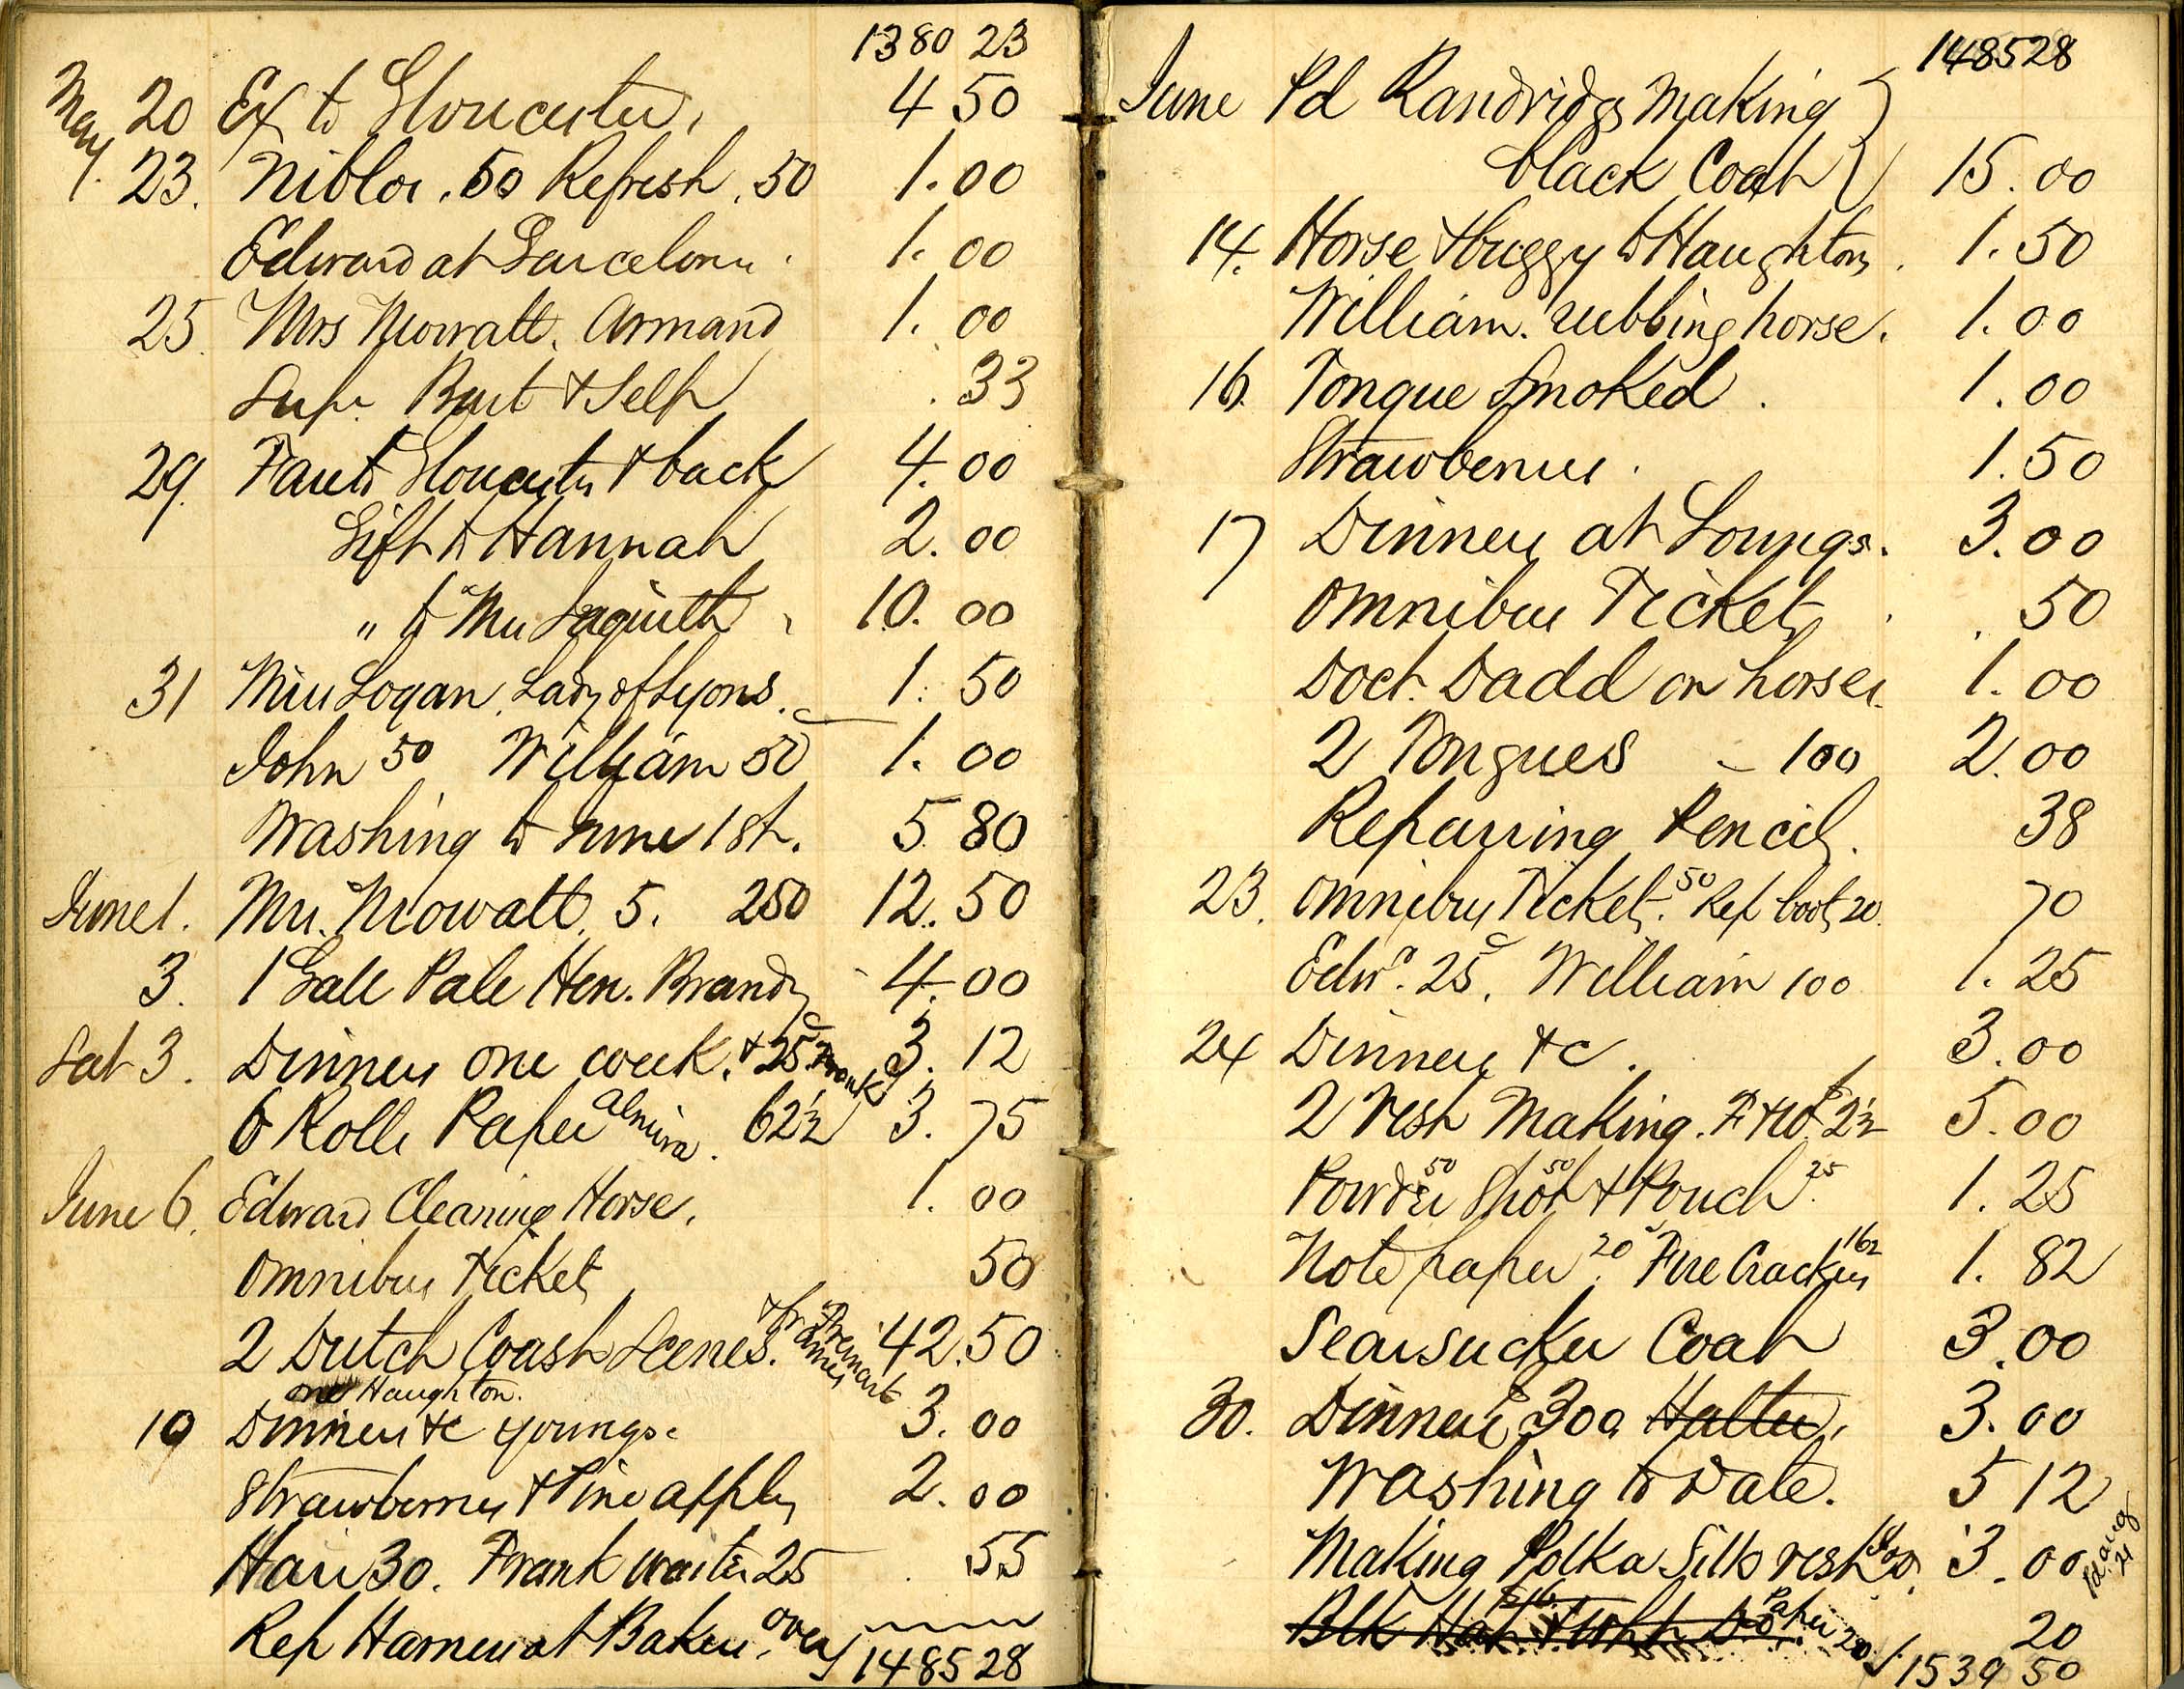 1380 23
May 20 Ex to Gloucester. 4 50
23. Niblos .50 Refresh .50 1.00
Edward at Barcelona. 1.00
25. Mrs Mowatt. Armand 1.00
Sup. Burt & Self .33
29. Fare to Gloucester & back 4.00
Gift to Hannah 2.00
" to Mrs 10.00
31 Miss Logan. Lady of Lyons. 1.50
John 50 William 50 1.00
Washing to June 1st. 5 80
June 1. Mrs. Mowatt. 5. 250 12.50
3. 1 Gall Pale Hen. Brandy 4.00
Sat 3. Dinners one week. & 25c Frank 3.12
6 Rolls Paper Almira. 62½ 3.75
June 6. Edward Cleaning Horse. 1.00
Omnibus Tickets 50
2 Dutch Coast Scenes. & frames 42.50
one Haughton.
10 Dinners &c Youngs. 3.00
Strawberries & Pine apples 2.00
Hair 30. Frank waiter 25 .55
Rep Harness at Bakers. over 1485 28
1485 28
June Pd Randridge Making
black Coat 15.00
14. Horse & buggy to Haughtons. 1.50
William. rubbing horse. 1.00
16. Tongue Smoked. 1.00
Strawberries. 1.50
17 Dinners at Youngs. 3.00
Omnibus Tickets .50
Doct. Dadd on horses. 1.00
2 Tongues 100 2.00
Repairing Pencil. 38
23. Omnibus Tickets. 50 Rep boots 20. 70
Edwd. 25c. William 100 1.25
24 Dinners &c. 3.00
2 Vest Making. 2½ 5.00
Powder 50 Shot 50 & Pouch 25. 1.25
Note paper 20. Fire Crackers 162 1.82
Searsucker Coat 3.00
30. Dinners 300 Halter. 3.00
Washing to Date. 5 12
Making Polka Silk vest 3.00 Pd. Aug 21
Blk Hat & Wht Do. Paper 20 20
1539 50